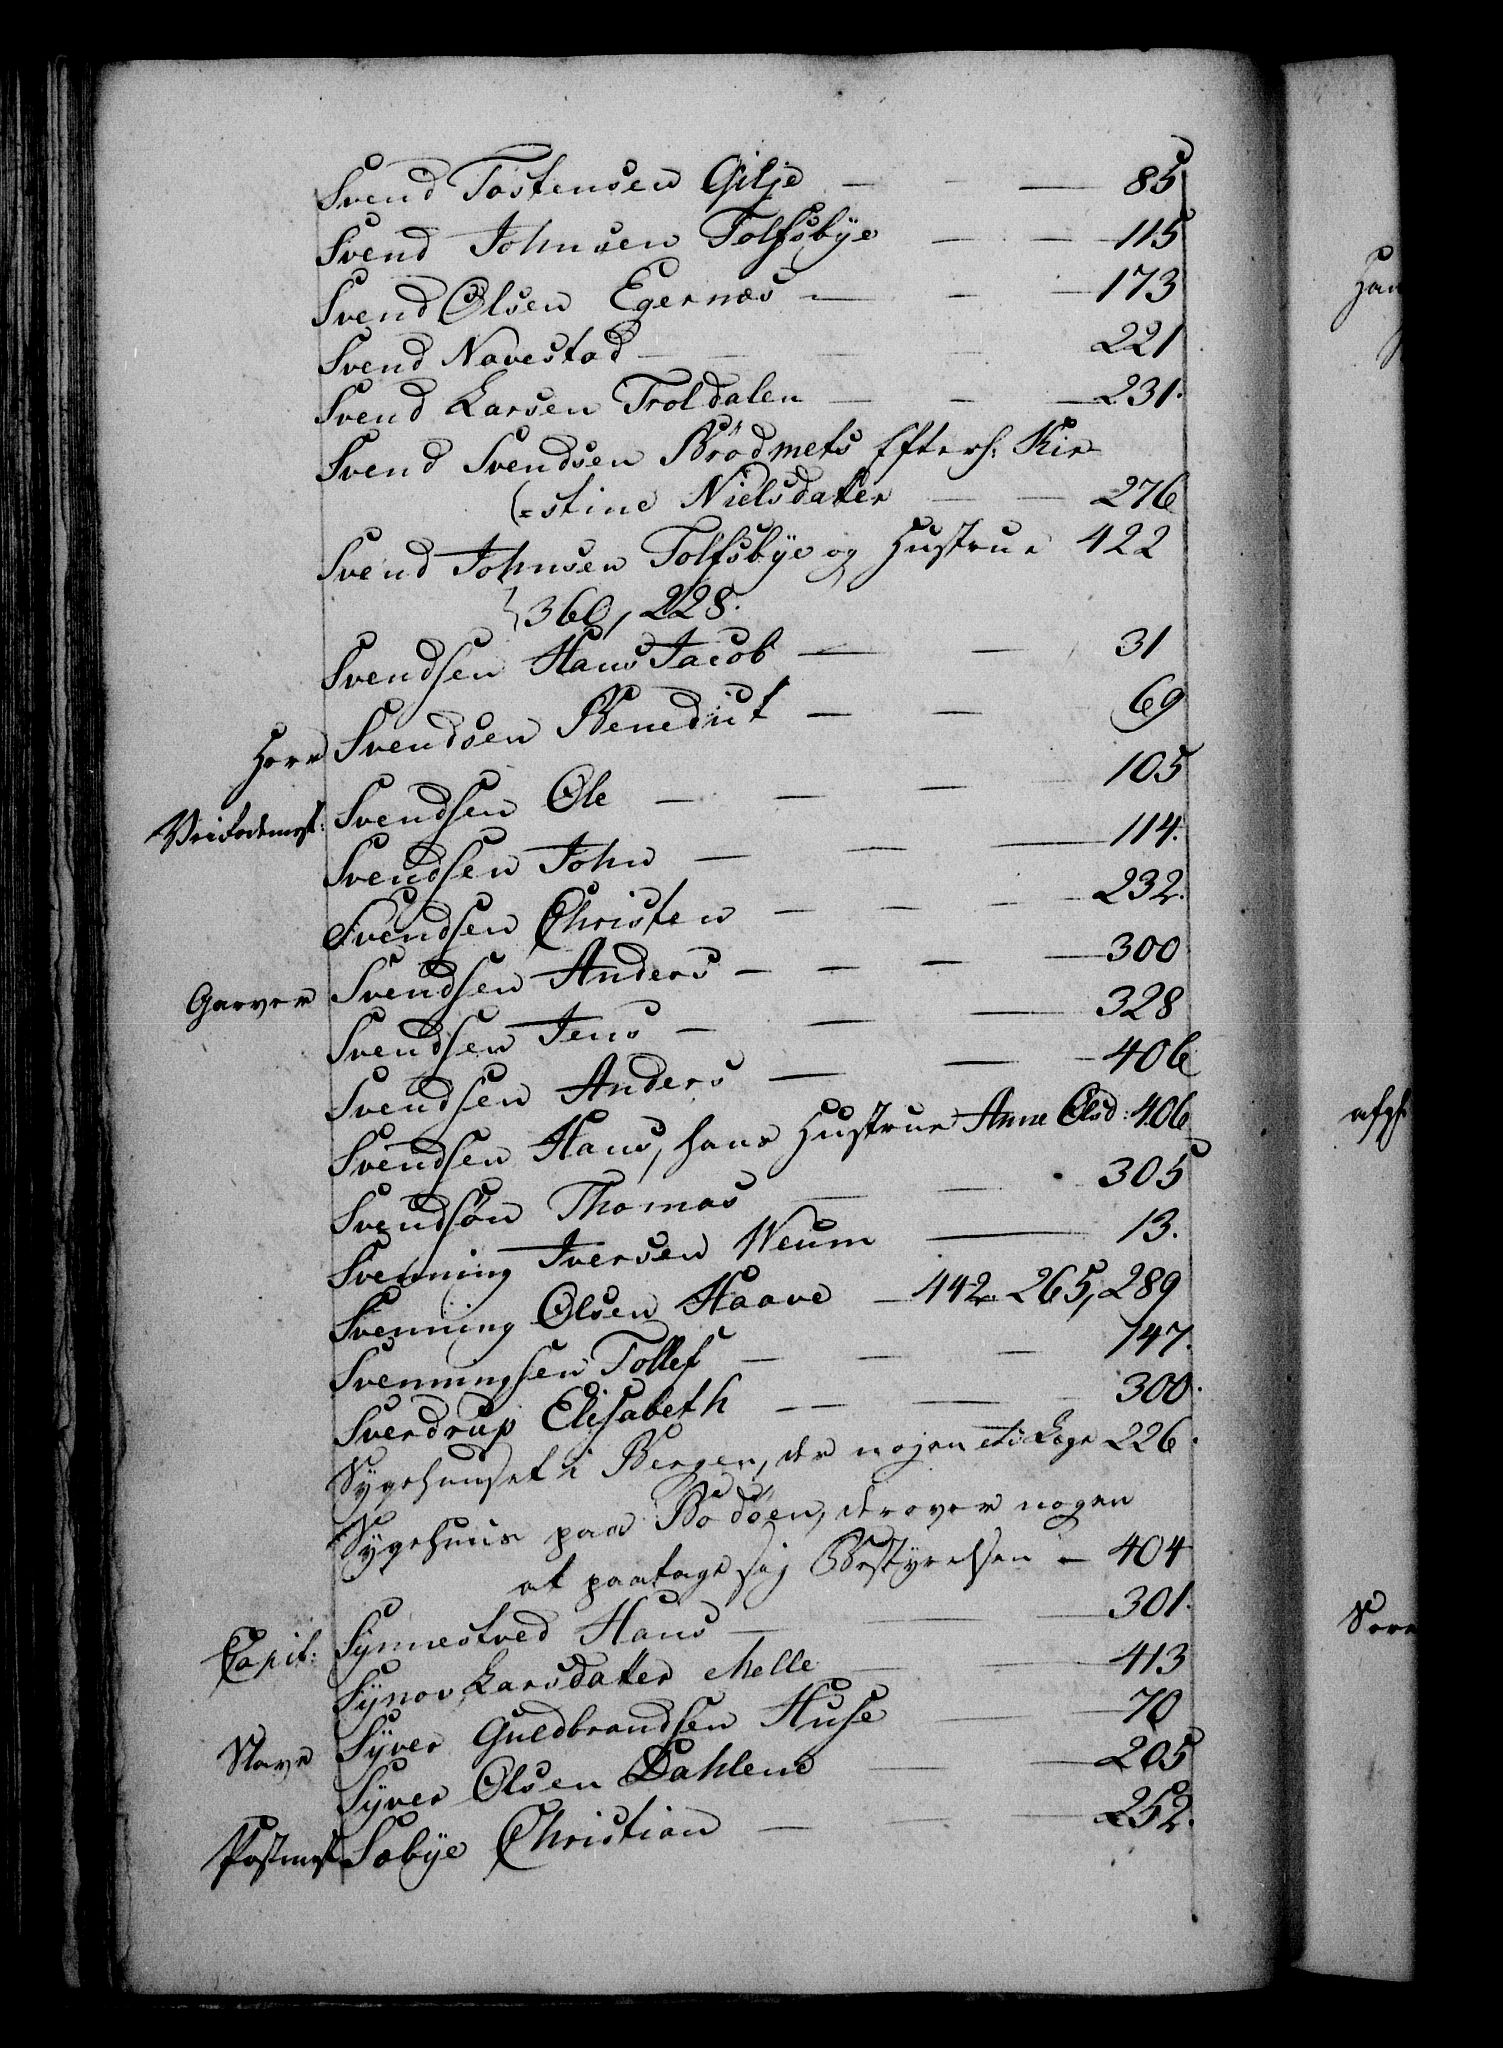 Svend Tostensen Gilje — — — 85
Svend Johnsen Tolfsbye — — 115
Svend Olsen Egernæs — — — 173
Svend Navestad — — — — 221
Svend Larsen Troldalen — — — 231.
Svend Svendsen Brödmets Efterh: Kir-
(=stine Nielsdatter — — 276
Svend Johnsen Tolfsbye og Hustrue 422
360, 228.
Svendsen Hans Jacob — — 31
Herr Svendsen Benedict — — 69
Svendsen Ole — — — 105
Svendsen John — — — 114.
Svendsen Christen — — — 232.
Garver Svendsen Anders — — — — 300
Svendsen Jens — — — 328
Svendsen Anders — — — 406
Svendsen Hans, hans Hustrue Anne Olsd: 406
Svendsön Thomas — — 305
Svenning Iversen Neum — 13.
Svenning Olsen Haave — 442. 265, 289
Svenningsen Tollef — — — 147.
Sverdrup Elisabeth — — — 300.
Sygehuuset i Bergen, 226.
Sygehuus paa Bödöen, derover nogen
at paatage sig Bestyrelsen — 404
Capit: Synnestved Hans — — — 301.
Synov Larsdatter Melle — — 413
Slave Syver Guldbrandsen Huse — — 70
Syver Olsen Dahlene — — 205
Postmest Søbye Christian — — — 252.